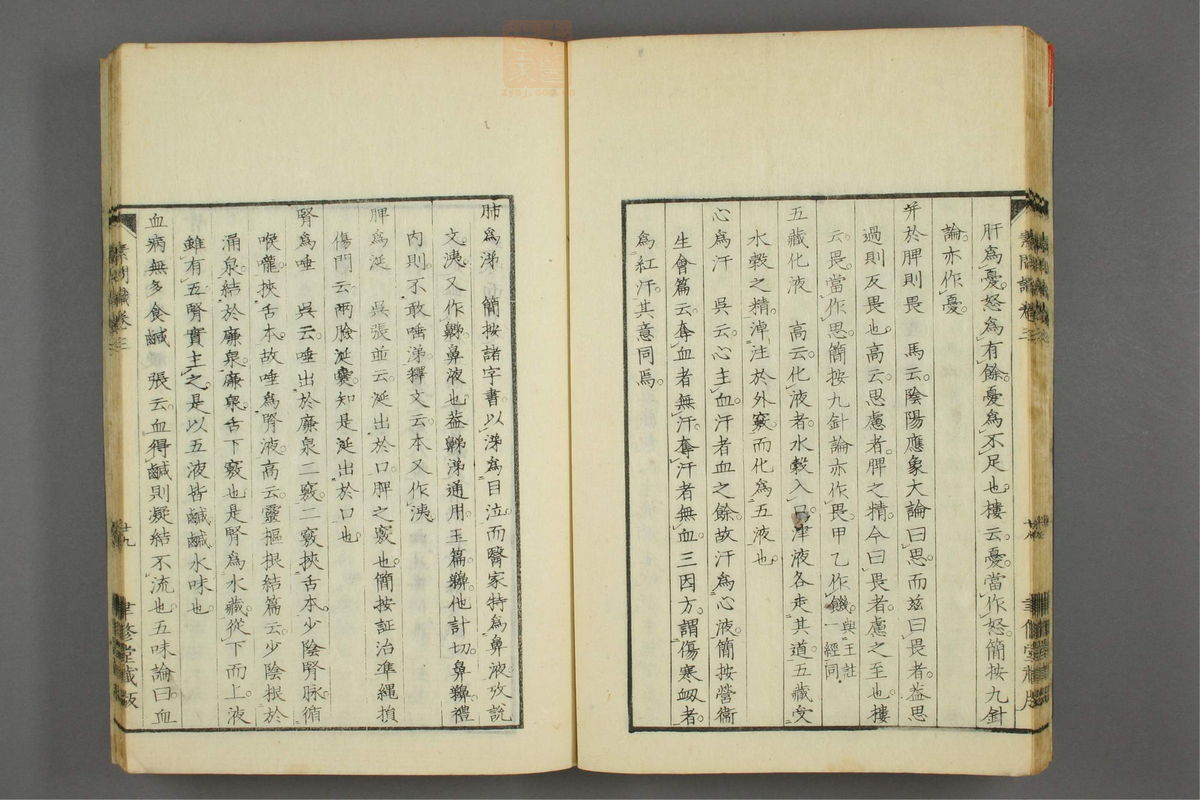 肝爲憂。怒爲有餘。憂爲不足也樓云憂當作怒。簡按九針
論亦作憂
并於脾則畏　馬云陰陽應象大論曰思而兹曰畏者。蓋思
過則反畏也。高云思慮者。脾之精。今曰畏者。慮之至也。樓
云。畏當作思。簡按九針論亦作畏。甲乙作飢。一經同。與王註
五藏化液　高云化液者。水穀入口。津液各走其道。五藏受
水穀之精。淖注於外竅。而化爲五液也
心爲汗　吳云心主血。汗者血之餘。故汗爲心液。簡按營衞
生會篇云。奪血者無汗。奪汗者無血。三因方。謂傷寒衂者。
爲紅汗。其意同焉。
素問識卷三
肺爲涕　簡按諸字書。以涕爲目泣。而醫家特爲鼻液。攷說
文。洟又作鵜鼻液也。蓋
内則。不敢唾涕。釋文云。本又作洟
脾爲涎　吳張並云。涎出於口。脾之竅也。簡按証治準繩損
傷門云。兩臉涎囊。知是涎出於口也
腎爲唾　吳云。唾出於廉泉二竅。二竅挾舌本。少陰腎脉。循
喉嚨。挾舌本。故唾爲腎液。高云。靈樞根結篇云。少陰根於
涌泉。結於廉泉。廉泉。舌下竅也。是腎爲水藏。從下而上。液
雖有五。腎實主之。是以五液皆鹹。鹹水味也。
血病無多食鹹　張云。血得鹹則凝結不流也。五味論曰。血
素問識卷三
廿九
聿修堂藏版